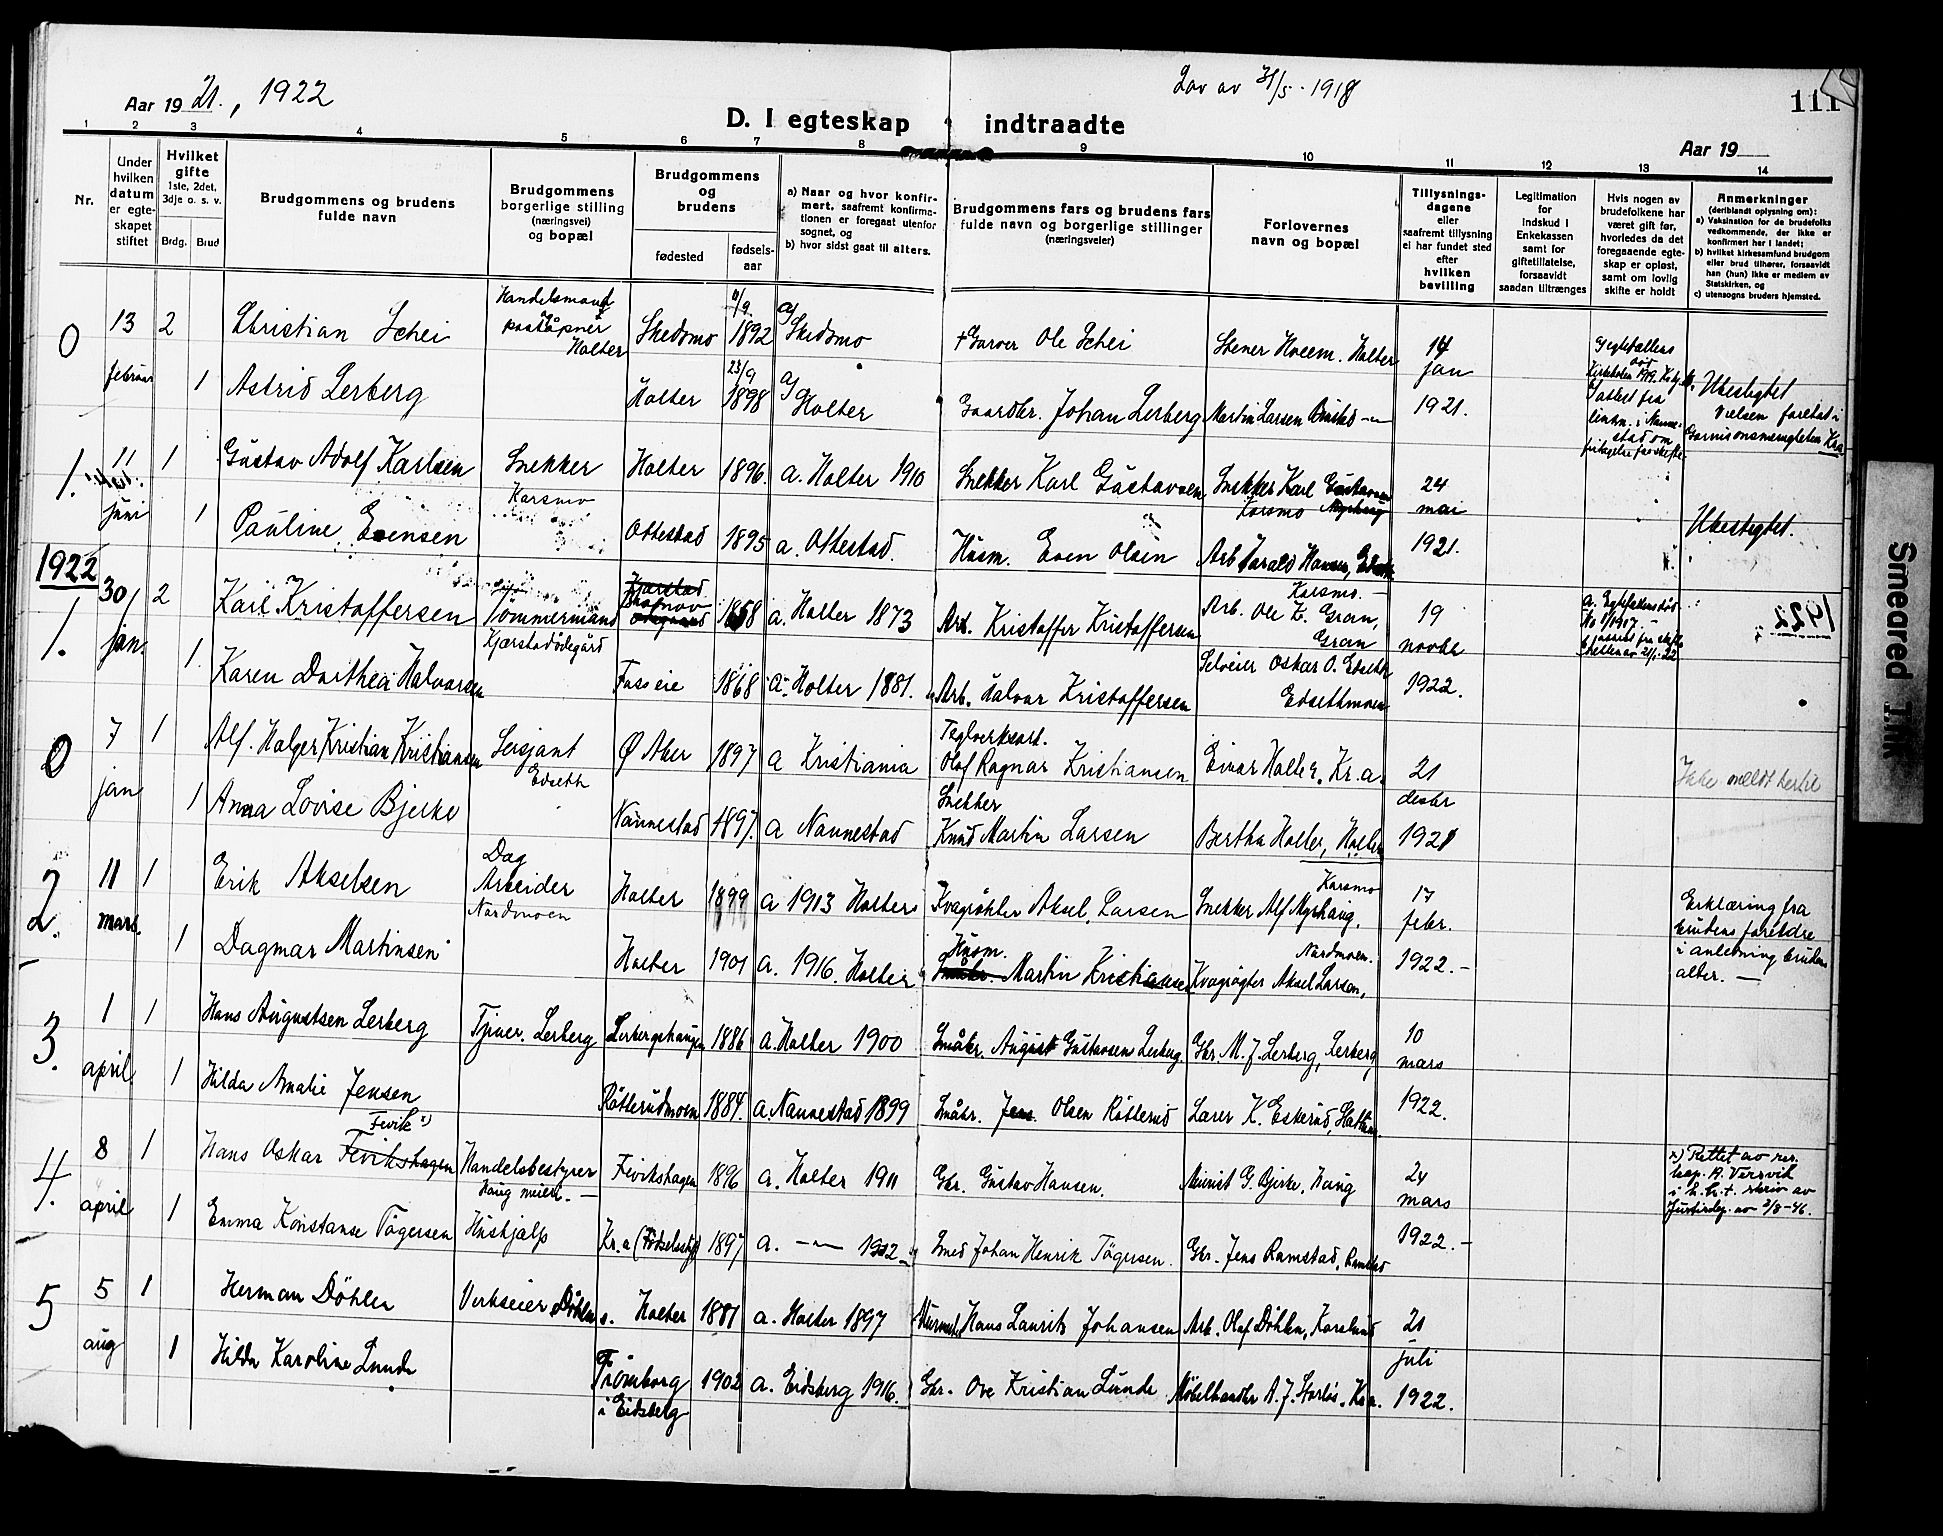 Aar 1921., 1922
Lov av 31/5. 1918
111
D. I egteskap indtraadte
Aar 19
1 2 3 4 5 6 7 8 9 10 11 12 13 14
Nr.
Under hvilken datum er egteskapet stiftet
Hvilket gifte 1ste, 2det, 3dje o. s. v.
Brdg. Brud
Brudgommens og brudens fulde navn
Brudgommens borgerlige stilling (næringsvei) og bopæl
Brudgommens og brudens
fødested
fødselsaar
a) Naar og hvor konfirmert, saafremt konfirmationen er foregaat utenfor sognet, og
b) hvor sidst gaat til alters.
Brudgommens fars og brudens fars fulde navn og borgerlige stillinger (næringsveier)
Forlovernes navn og bopæl
Tillysningsdagene eller saafremt tillysning ei har fundet sted efter hvilken bevilling
Legitimation for Indskud i Enkekassen samt for giftetillatelse, forsaavidt saadan tiltrænges
Hvis nogen av brudefolkene har været gift før, hvorledes da det foregaaende egteskap er opløst, samt om lovlig skifte er holdt
Anmerkninger (deriblandt oplysning om):
a) Vaksination for de brudefolks vedkommende, der ikke er konfirmert her i landet;
b) hvilket kirkesamfund brudgom eller brud tilhører, forsaavidt han (hun) ikke er medlem av Statskirken, og
c) utensogns bruders hjemsted.
0 13 februar 2 Christian Schei Handelsmand og postaapner Holter Skedsmo 11/9. 1892 a/ Skedsmo + Garver Ole Schei Stener Hoeem. Holter 14 jan 1921.
Egtefællens død
1 Astrid Lerberg Holter 23/9 1898 a/ Holter Gaardbr. Johan Lerberg Martin Larsen
Ukestygtet
Vielsen foretat i Garnisonsmenigheten Kra
1. 11 juni 1 Gustav Adolf Karlsen Snekker Karsmo Holter 1896. a. Holter 1910 Snekker Karl Gustavsen Snekker Karl Gustavsen Karsmo 24 mai 1921.
1 Pauline Evensen Ottestad 1895 a. Ottestad. Husm. Even Olsen Arb Harald Hansen,
Ukestygtet.
1922
1. 30 jan. 2 Karl Kristoffersen Tømmermand Kjærstadødegård 1858 a. Holter 1873 Arb. Kristoffer Kristoffersen Arb. Ole K. Gran, Gran 19 novbr 1922.
1922
1. Karen Dorthea Halvorsen 1868 a. Holter 1881. Arb. Halvor Kristoffersen Selveier Oskar O. Edseth Edsethmoen
0 7 jan 1 Alf. Holger Kristian Kristiansen Sersjant Edseth Ø Aker 1897 a Kristiania Teglverksarb. Olaf Ragnar Kristiansen Einar Holter, Kr.a. 21 desbr 1921
Ikke meldt hertil
1 Anna Lovise Bjerke Nannestad 1897. a Nannestad Snekker Knud Martin Larsen Bertha Holter, Holter
2. 11 mars. 1 Erik Akselsen Dag Arbeider Nordmoen Holter 1899 a 1913 Holter Kvægrøkter Aksel Larsen Snekker Alf Myrhaug, Karsmo 17 febr. 1922.-
Erklæring fra brudens foreldre i anledning brudens alter. -
1 Dagmar Martinsen Holter 1901 a. 1916. Holter Husm. Martin Kristiansen Kvægrøgter Aksel Larsen, Nordmoen.
3. 1 april. 1 Hans Augustsen Lerberg Tjener. Lerberg Lerbergshaugen 1886 a. Holter 1900 Småbr. August Gustavsen Lerberg. Gbr. M. J. Lerberg, Lerberg, 10 mars 1922.
1 Hilda Amalie Jensen Røtterudmoen 1884. a. Nannestad 1899 Småbr. Jens Olsen Røtterud Lærer K. Eskerud,
4. 8 april 1 Hans Oskar Fevikshagen Fevik x) Handelsbestyrer Haug meieri. - Fevikshagen 1896 a. Holter 1911 Gbr. Gustav Hansen. G. Bjerke, Haug 24 mars 1922.-
x) Rettet av res. kap. A. Versvik i h. h. t. skriv av Justisdep. av 2/8-46.
1 Emma Konstanse Tøgersen Hushjælp Kr.a (Fødselsstif) 1897 a. -"- 1912 Smed Johan Henrik Tøgersen. Gbr. Jens Ramstad, Ramstad
5 5 aug 1 Herman Døhlen Verkseier Døhlen s. Holter 1881 a. Holter 1897 Murmest. Hans Laurits Johansen Arb. Olaf Døhlen, Karslund 21 juli 1922.
1 Hilda Karoline Lunde Trømborg i Eidsberg 1902 a. Eidsberg 1916. Gbr. Ove Kristian Lunde Møbelhandler A. J. Storløs. Kr.a.
Smeared Ink